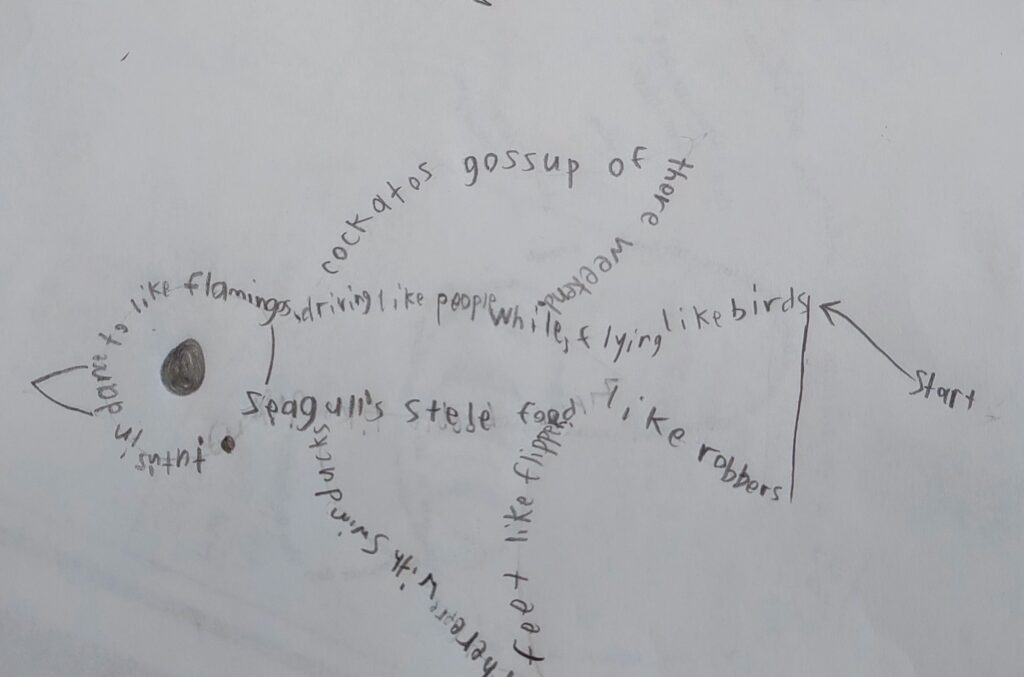 Start
seagull's stele food like robbers
ducks swim with there
feet like flippers
tutu's in dance to like flamingos,
driving like people while, flying like birds
cockatos gossup of there weekend